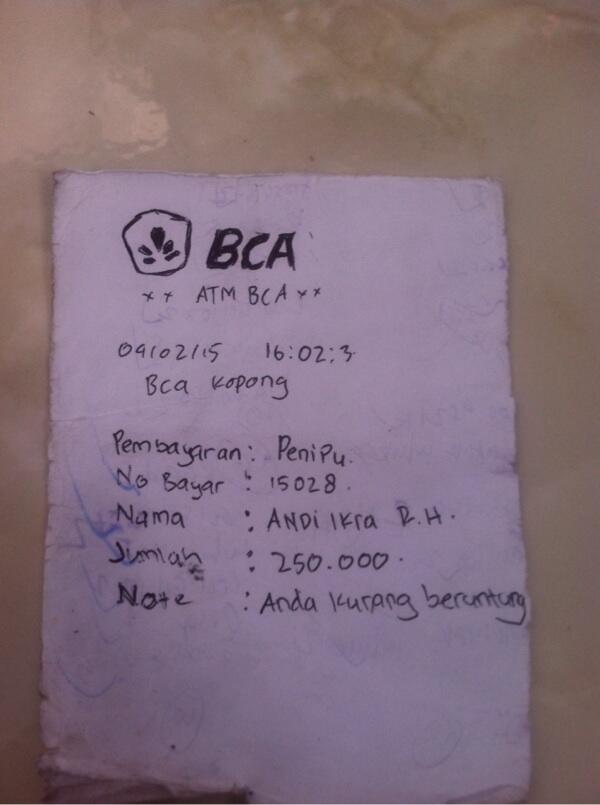 BCA
** ATM BCA **
09/02/15 16:02:3.
Bca Kopong
Pembayaran: Penipu.
No Bayar : 15028.
Nama : ANDi IKra R.H.
Jumlah : 250.000.
Note : Anda Kurang beruntung